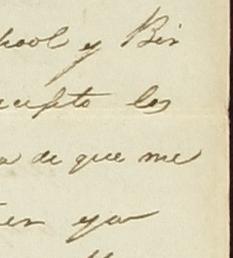 hool y Bir
cepto los
a de que me
ten ya